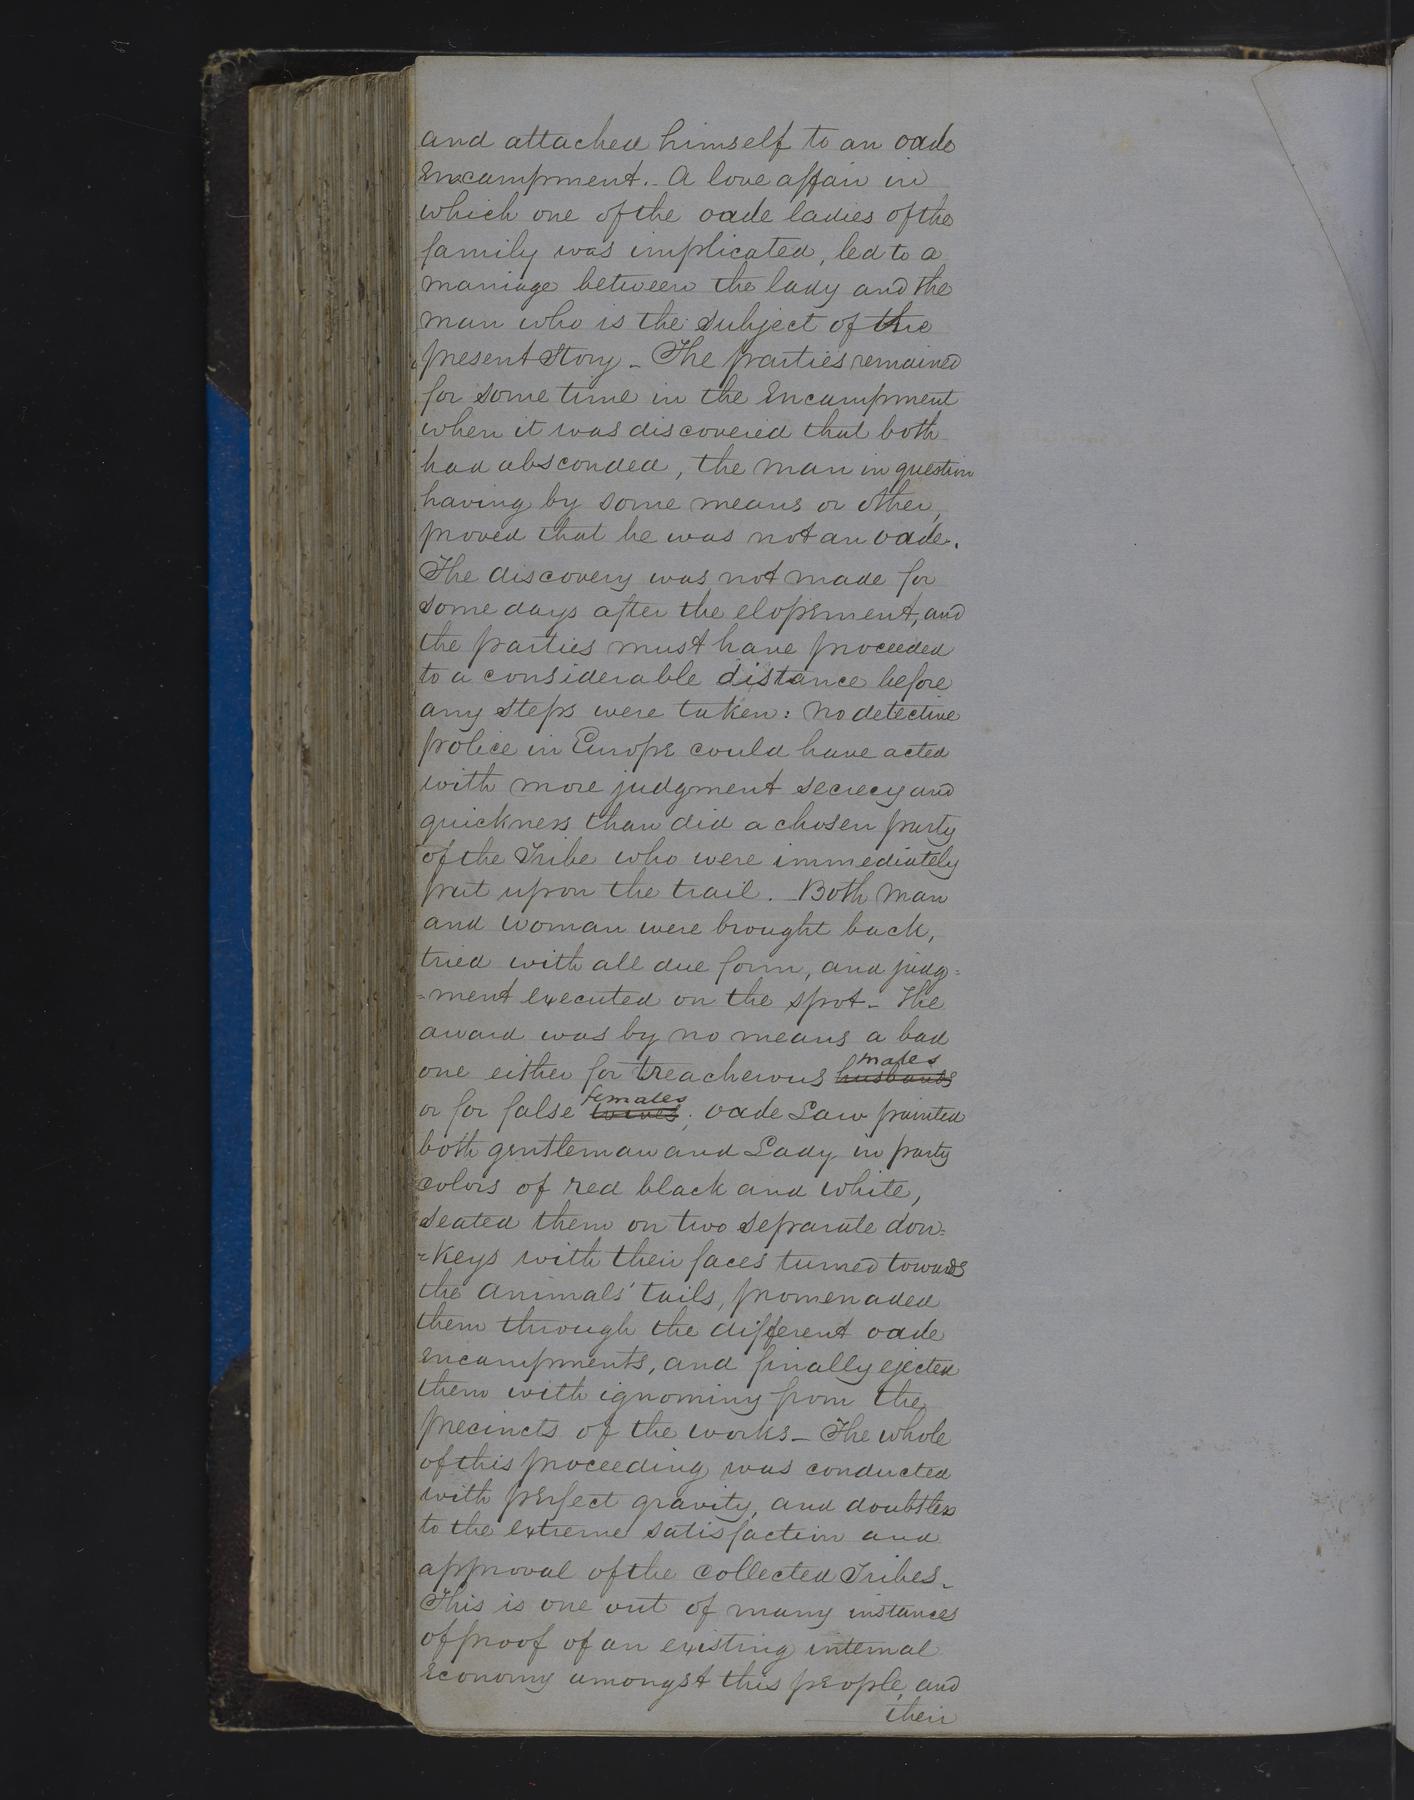 and attached himself to an oade
Encampment. - A love affair in
which one of the oade ladies of the
family was implicated, led to a
marriage between the lady and the
man who is the subject of the
present Story - The parties remained
for some time in the Encampment
when it was discovered that both
had absconded, the man in question
having by some means or other,
proved that he was not an oade.
The discovery was not made for
some days after the elopement, and
the parties must have proceeded
to a considerable distance before
any steps were taken: no detective
police in Europe could have acted
with more judgment secrecy and
quickness than did a chosen party
of the Tribe who were immediately
put upon the trail. - Both man
and woman were brought back,
tried with all due form, and judg=
=ment executed on the spot - The
award was by no means a bad
males
one either for treacherous husbands
females
or for false wives; oade Law painted
both gentleman and Lady in party
colors of red black and white,
seated them on two separate don=
=keys with their faces turned towards
the animals' tails, promenaded
them through the different oade
encampments, and finally ejected
them with ignominy from the
precincts of the works - The whole
of this proceeding was conducted
with perfect gravity, and doubtless
to the extreme satisfaction and
approval of the collected Tribes -
This is one out of many instances
of proof of an existing internal
Economy amongst this people, and
their